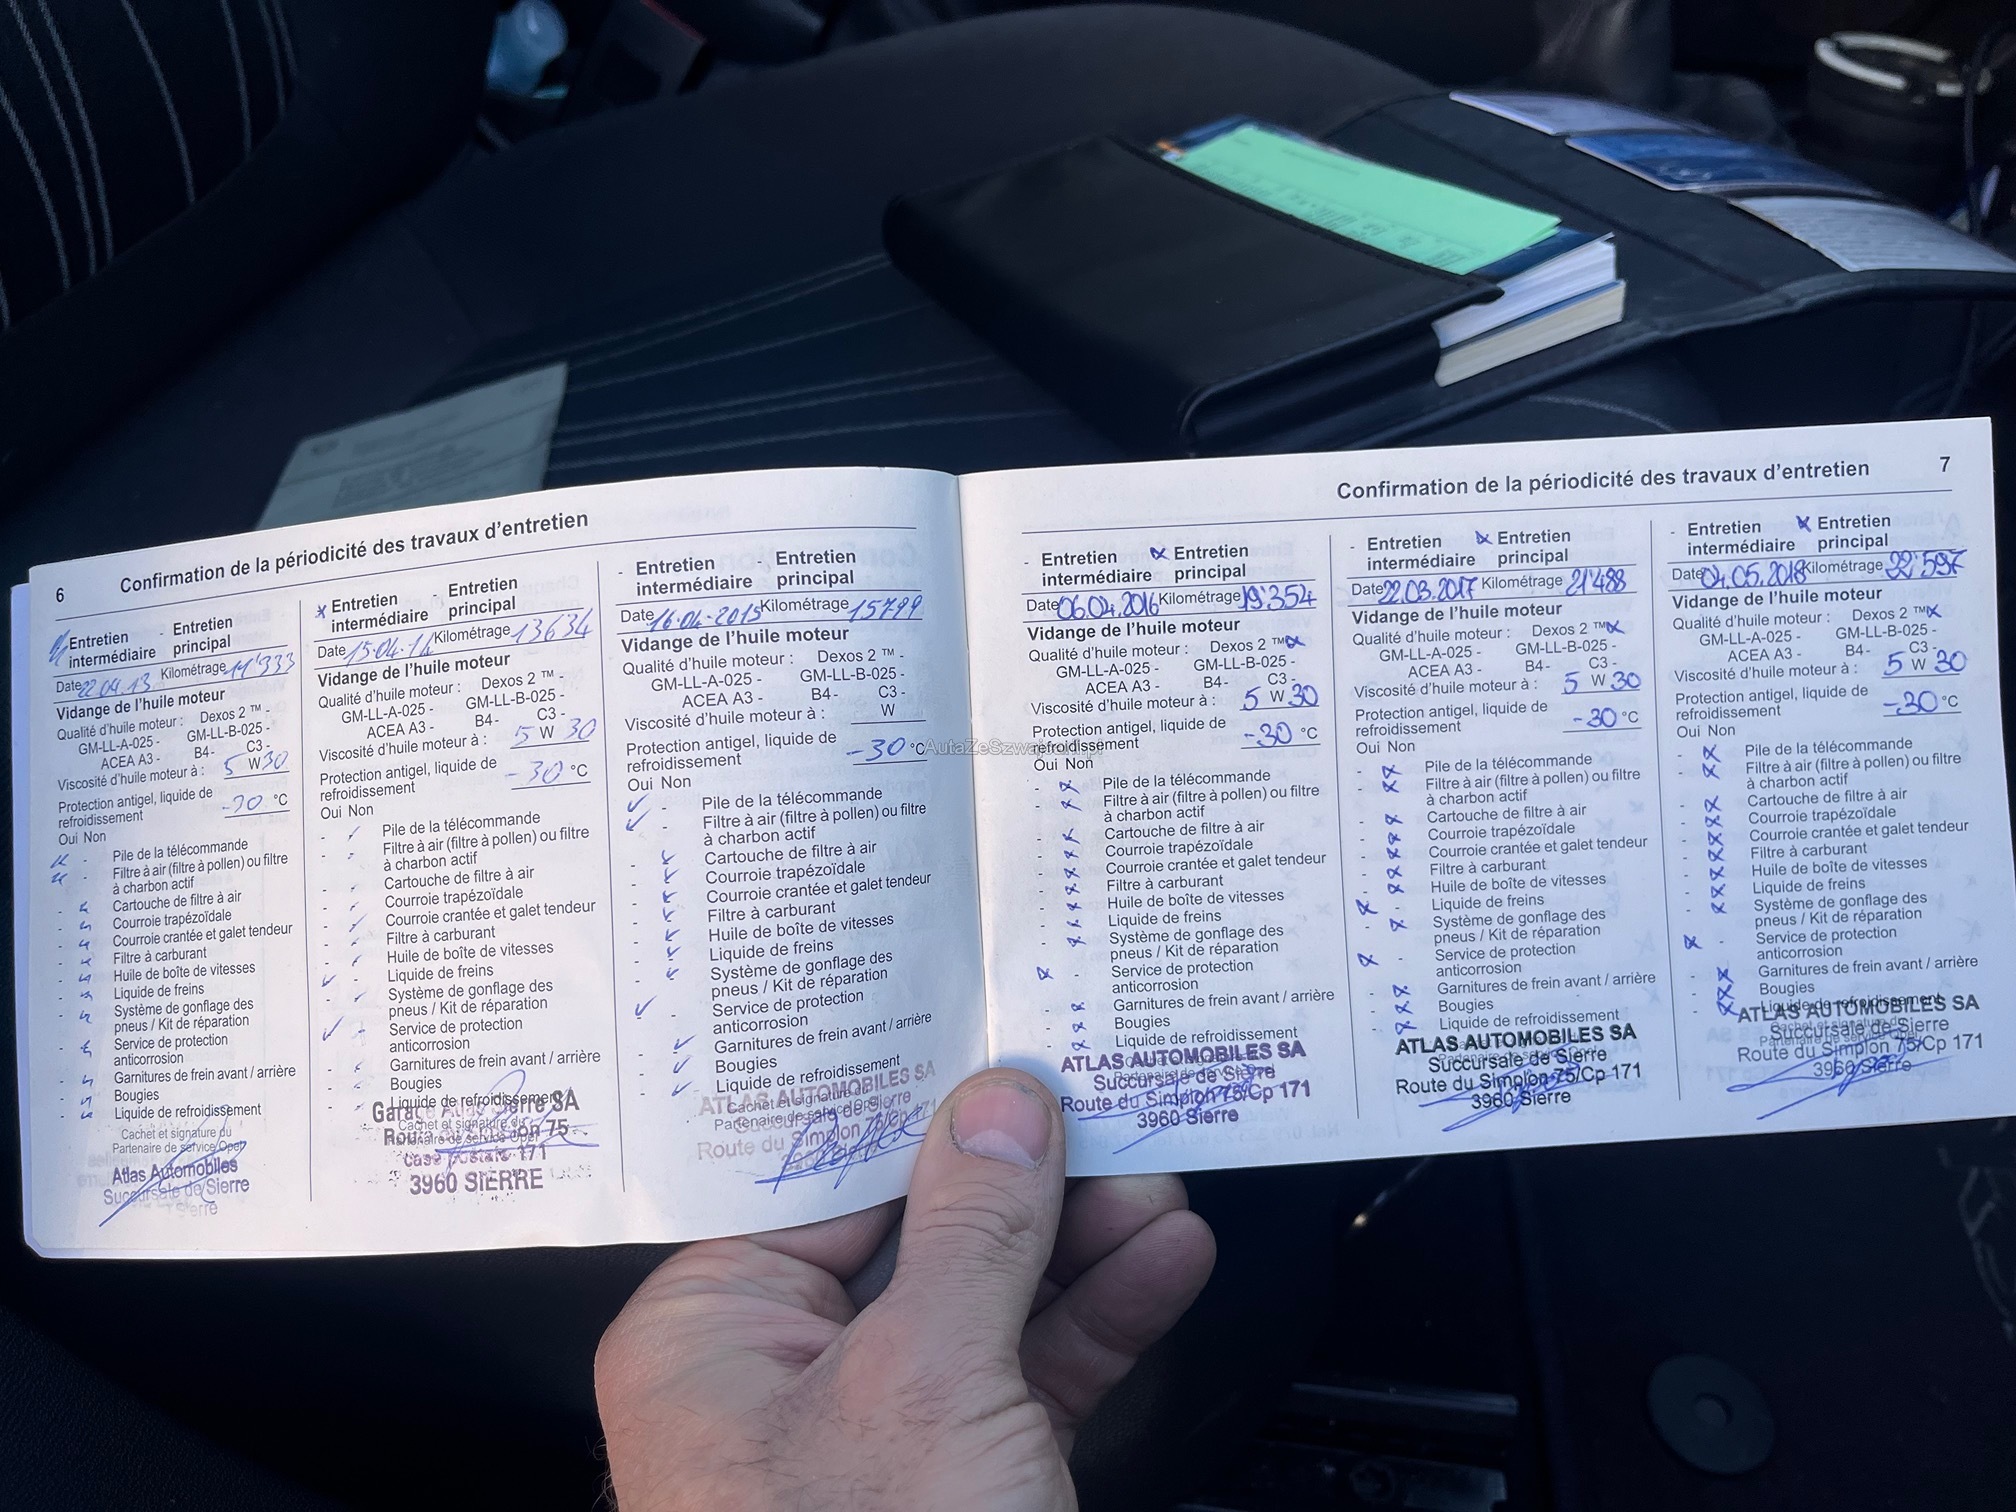 6
Confirmation de la périodicité des travaux d'entretien
Entretien intermédiaire - Entretien principal
Date 22.04.13 Kilométrage 11'333
Vidange de l'huile moteur
Qualité d'huile moteur : Dexos 2 ™ -
GM-LL-A-025 - GM-LL-B-025 -
ACEA A3 - B4- C3 -
Viscosité d'huile moteur à : 5 W 30
Protection antigel, liquide de
refroidissement °C
Oui Non
Pile de la télécommande
Filtre à air (filtre à pollen) ou filtre
à charbon actif
Cartouche de filtre à air
Courroie trapézoïdale
Courroie crantée et galet tendeur
Filtre à carburant
Huile de boîte de vitesses
Liquide de freins
Système de gonflage des
pneus / Kit de réparation
Service de protection
anticorrosion
Garnitures de frein avant / arrière
Bougies
Liquide de refroidissement
Cachet et signature du
Partenaire de service Opel
Atlas Automobiles
Succursale de Sierre
Sierre
x Entretien intermédiaire - Entretien principal
Date 15.04.14 Kilométrage 13634
Vidange de l'huile moteur
Qualité d'huile moteur : Dexos 2 ™ -
GM-LL-A-025 - GM-LL-B-025 -
ACEA A3 - B4- C3 -
Viscosité d'huile moteur à : 5 W 30
Protection antigel, liquide de
refroidissement -30 °C
Oui Non
Pile de la télécommande
Filtre à air (filtre à pollen) ou filtre
à charbon actif
Cartouche de filtre à air
Courroie trapézoïdale
Courroie crantée et galet tendeur
Filtre à carburant
Huile de boîte de vitesses
Liquide de freins
Système de gonflage des
pneus / Kit de réparation
Service de protection
anticorrosion
Garnitures de frein avant / arrière
Bougies
Liquide de refroidissement
Cachet et signature du
Partenaire de service Opel
Garage Atlas Sierre SA
Route du Simplon 75
Case postale 171
3960 SIERRE
- Entretien intermédiaire - Entretien principal
Date 16.04.2015 Kilométrage 15799
Vidange de l'huile moteur
Qualité d'huile moteur : Dexos 2 ™ -
GM-LL-A-025 - GM-LL-B-025 -
ACEA A3 - B4- C3 -
Viscosité d'huile moteur à : W
Protection antigel, liquide de
refroidissement -30 °C
Oui Non
Pile de la télécommande
Filtre à air (filtre à pollen) ou filtre
à charbon actif
Cartouche de filtre à air
Courroie trapézoïdale
Courroie crantée et galet tendeur
Filtre à carburant
Huile de boîte de vitesses
Liquide de freins
Système de gonflage des
pneus / Kit de réparation
Service de protection
anticorrosion
Garnitures de frein avant / arrière
Bougies
Liquide de refroidissement
Cachet et signature du
Partenaire de service Opel
ATLAS AUTOMOBILES SA
Succursale de Sierre
Route du Simplon 75/Cp 171
3960 Sierre
AutaZeSzwajcarii.pl
7
Confirmation de la périodicité des travaux d'entretien
- Entretien intermédiaire x Entretien principal
Date 06.04.2016 Kilométrage 19'354
Vidange de l'huile moteur
Qualité d'huile moteur : Dexos 2 ™ x
GM-LL-A-025 - GM-LL-B-025 -
ACEA A3 - B4- C3 -
Viscosité d'huile moteur à : 5 W 30
Protection antigel, liquide de
refroidissement -30 °C
Oui Non
Pile de la télécommande
Filtre à air (filtre à pollen) ou filtre
à charbon actif
Cartouche de filtre à air
Courroie trapézoïdale
Courroie crantée et galet tendeur
Filtre à carburant
Huile de boîte de vitesses
Liquide de freins
Système de gonflage des
pneus / Kit de réparation
Service de protection
anticorrosion
Garnitures de frein avant / arrière
Bougies
Liquide de refroidissement
ATLAS AUTOMOBILES SA
Succursale de Sierre
Route du Simplon 75/Cp 171
3960 Sierre
- Entretien intermédiaire x Entretien principal
Date 22.03.2017 Kilométrage 21'488
Vidange de l'huile moteur
Qualité d'huile moteur : Dexos 2 ™ x
GM-LL-A-025 - GM-LL-B-025 -
ACEA A3 - B4- C3 -
Viscosité d'huile moteur à : 5 W 30
Protection antigel, liquide de
refroidissement -30 °C
Oui Non
Pile de la télécommande
Filtre à air (filtre à pollen) ou filtre
à charbon actif
Cartouche de filtre à air
Courroie trapézoïdale
Courroie crantée et galet tendeur
Filtre à carburant
Huile de boîte de vitesses
Liquide de freins
Système de gonflage des
pneus / Kit de réparation
Service de protection
anticorrosion
Garnitures de frein avant / arrière
Bougies
Liquide de refroidissement
ATLAS AUTOMOBILES SA
Succursale de Sierre
Route du Simplon 75/Cp 171
3960 Sierre
- Entretien intermédiaire x Entretien principal
Date 04.05.2018 Kilométrage 22'597
Vidange de l'huile moteur
Qualité d'huile moteur : Dexos 2 ™ x
GM-LL-A-025 - GM-LL-B-025 -
ACEA A3 - B4- C3 -
Viscosité d'huile moteur à : 5 W 30
Protection antigel, liquide de
refroidissement -30 °C
Oui Non
Pile de la télécommande
Filtre à air (filtre à pollen) ou filtre
à charbon actif
Cartouche de filtre à air
Courroie trapézoïdale
Courroie crantée et galet tendeur
Filtre à carburant
Huile de boîte de vitesses
Liquide de freins
Système de gonflage des
pneus / Kit de réparation
Service de protection
anticorrosion
Garnitures de frein avant / arrière
Bougies
Liquide de refroidissement
Cachet et signature du
Partenaire de service Opel
ATLAS AUTOMOBILES SA
Succursale de Sierre
Route du Simplon 75/Cp 171
3960 Sierre